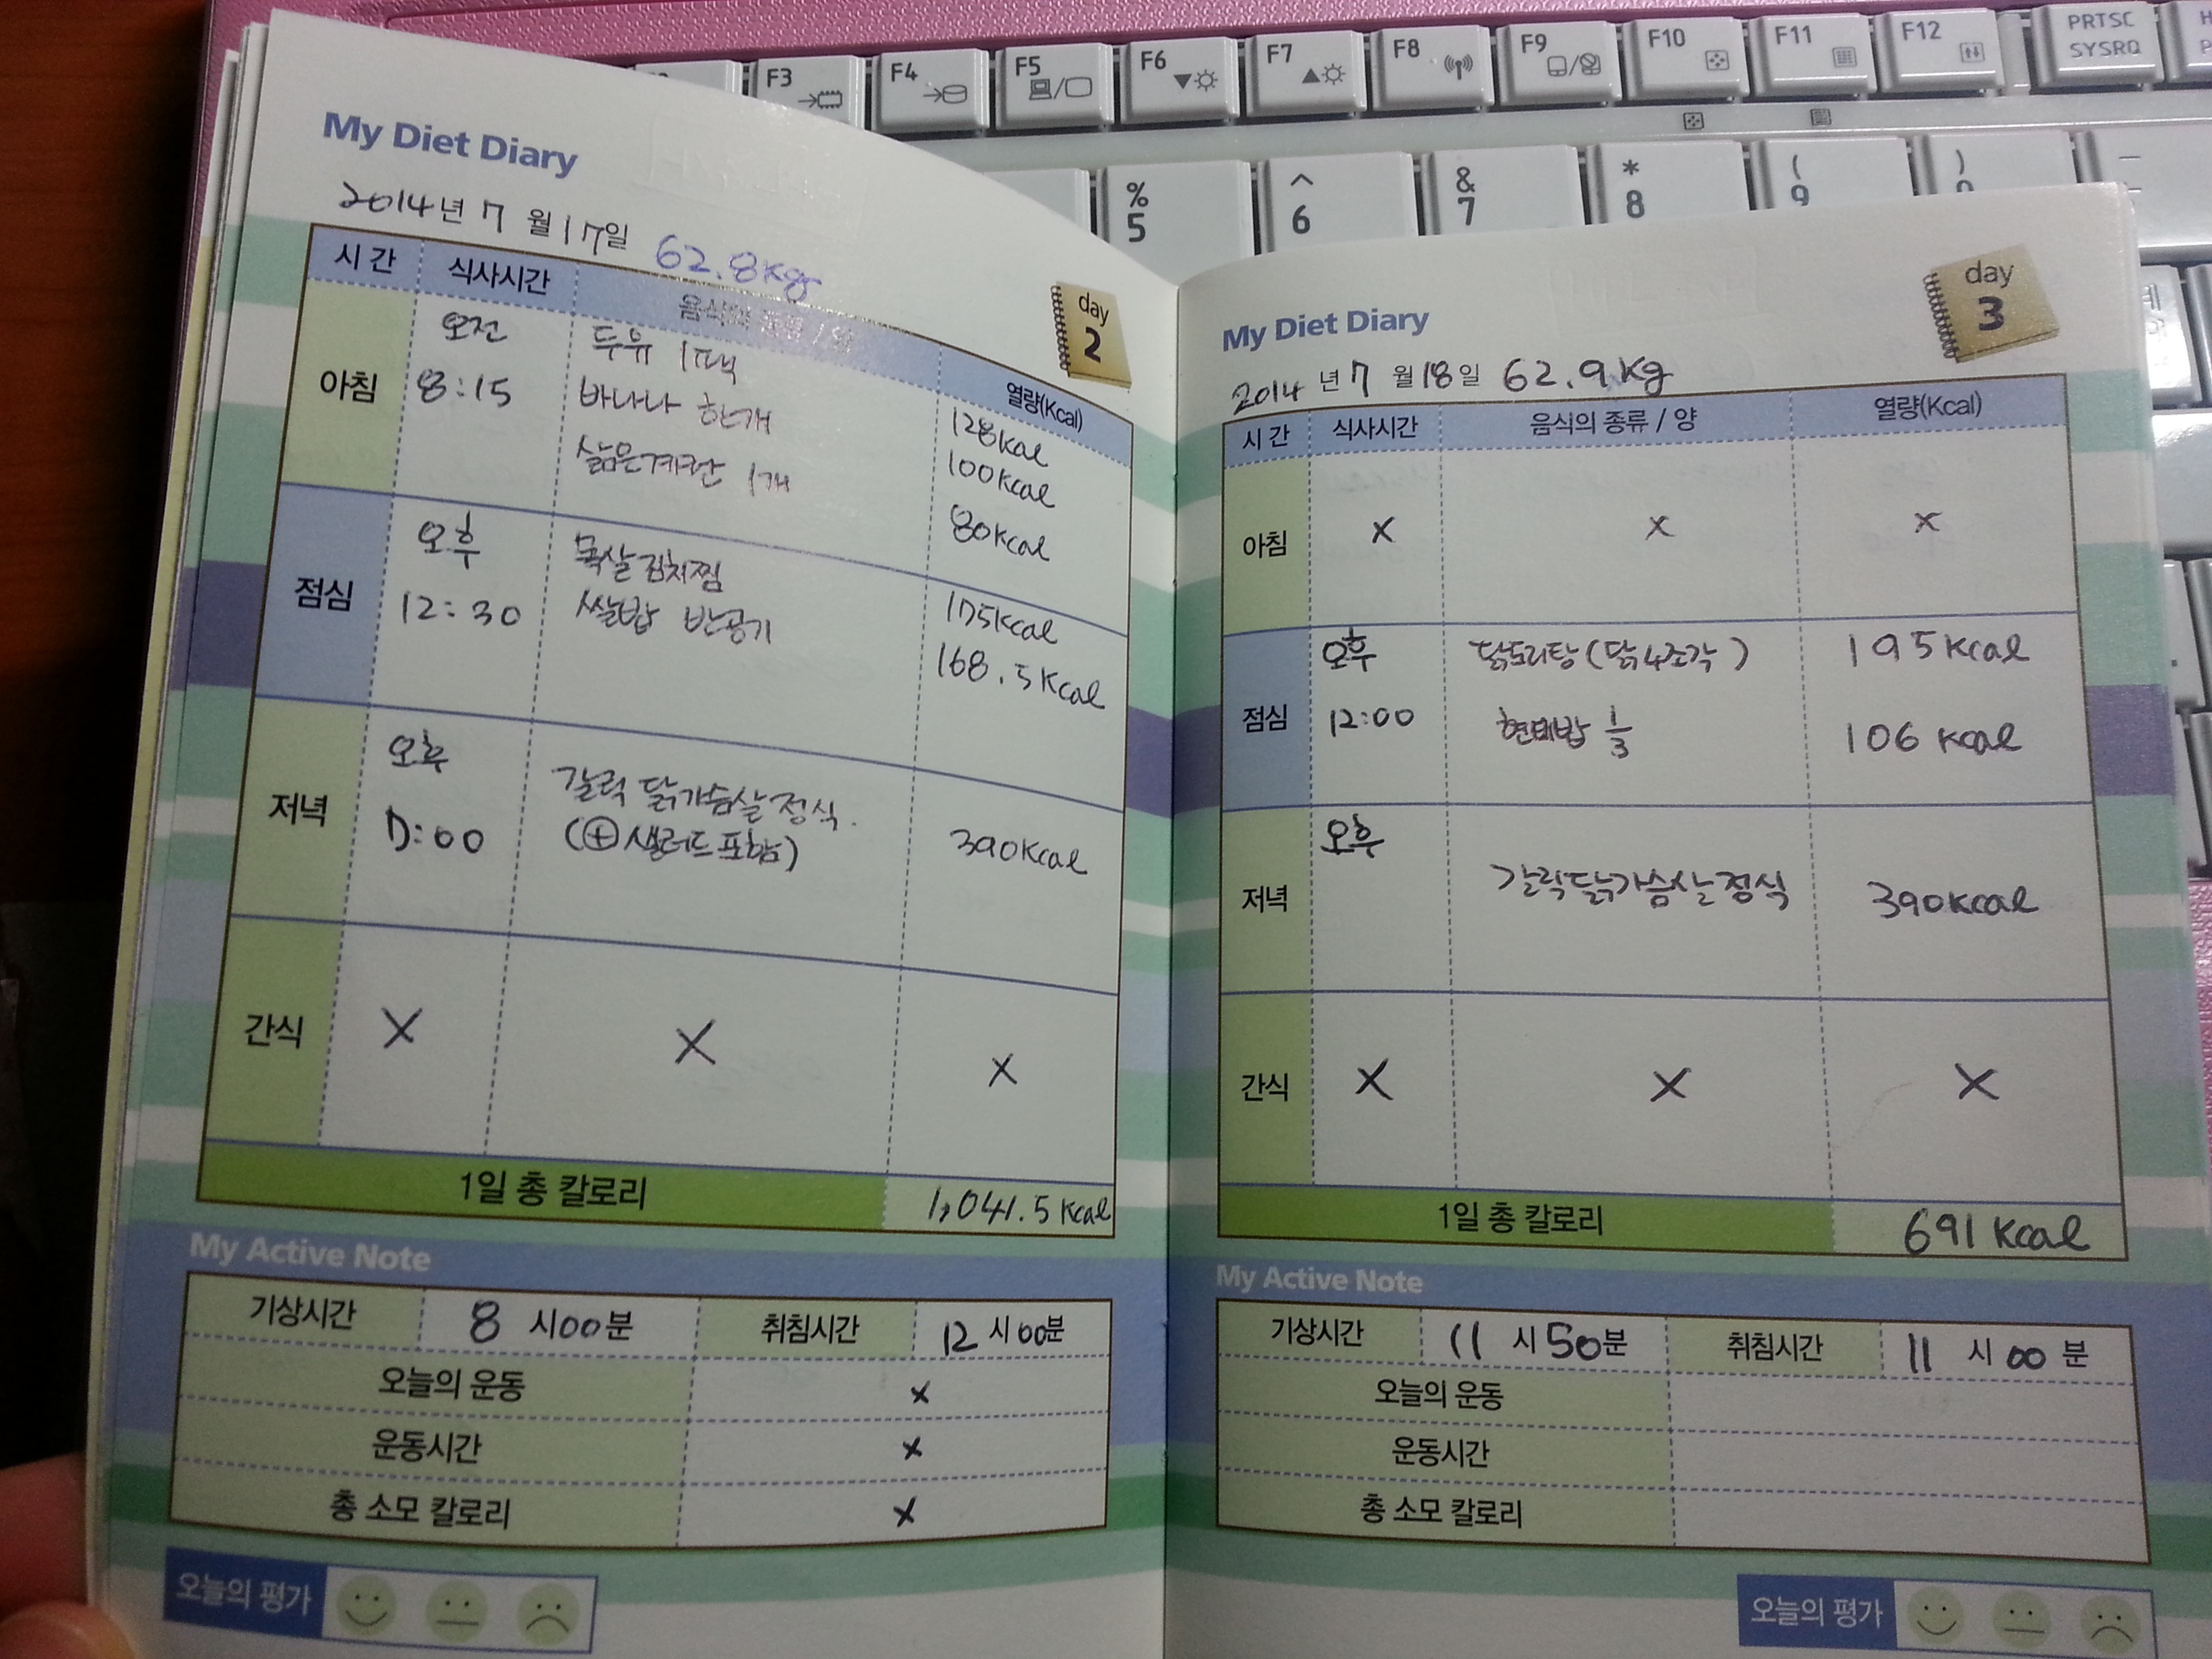 F3
F4
F5
F6
F7
F8
F9
F10
F11
F12
PRTSC
SYSRQ
%
5
^
6
&
7
*
8
(
9
)
My Diet Diary
2014년 7월 17일 62.8kg
day
2
시간 식사시간 음식의 종류 / 양 열량(Kcal)
아침
오전
8:15
두유 1팩
바나나 한개
삶은계란 1개
128kcal
100kcal
80kcal
점심
오후
12:30
목살김치찜
쌀밥 반공기
175kcal
168.5kcal
저녁
오후
7:00
갈릭 닭가슴살 정식.
(⊕샐러드포함)
390kcal
간식 X X X
1일 총 칼로리 1,041.5 kcal
My Active Note
기상시간 8시00분 취침시간 12시00분
오늘의 운동 X
운동시간 X
총 소모 칼로리 X
오늘의 평가
day
3
My Diet Diary
2014년 7월 18일 62.9kg
시간 식사시간 음식의 종류 / 양 열량(Kcal)
아침 X X X
점심
오후
12:00
닭도리탕(닭4조각)
현미밥 1/3
195kcal
106 kcal
저녁
오후
갈릭닭가슴살정식
390kcal
간식 X X X
1일 총 칼로리 691 kcal
My Active Note
기상시간 11시50분 취침시간 11시00분
오늘의 운동
운동시간
총 소모 칼로리
오늘의 평가